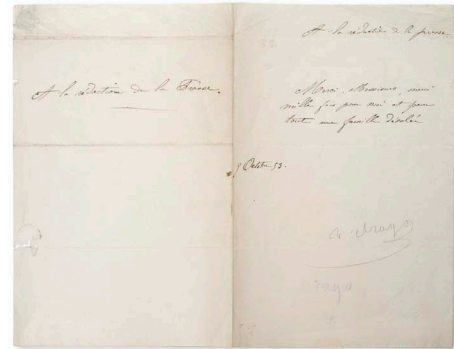 A la rédaction de la Presse.
A la rédaction de la presse
Merci, Messieurs, merci
mille fois pour moi et pour
toute ma famille désolée
5 Octobre 53.
Arago
arago